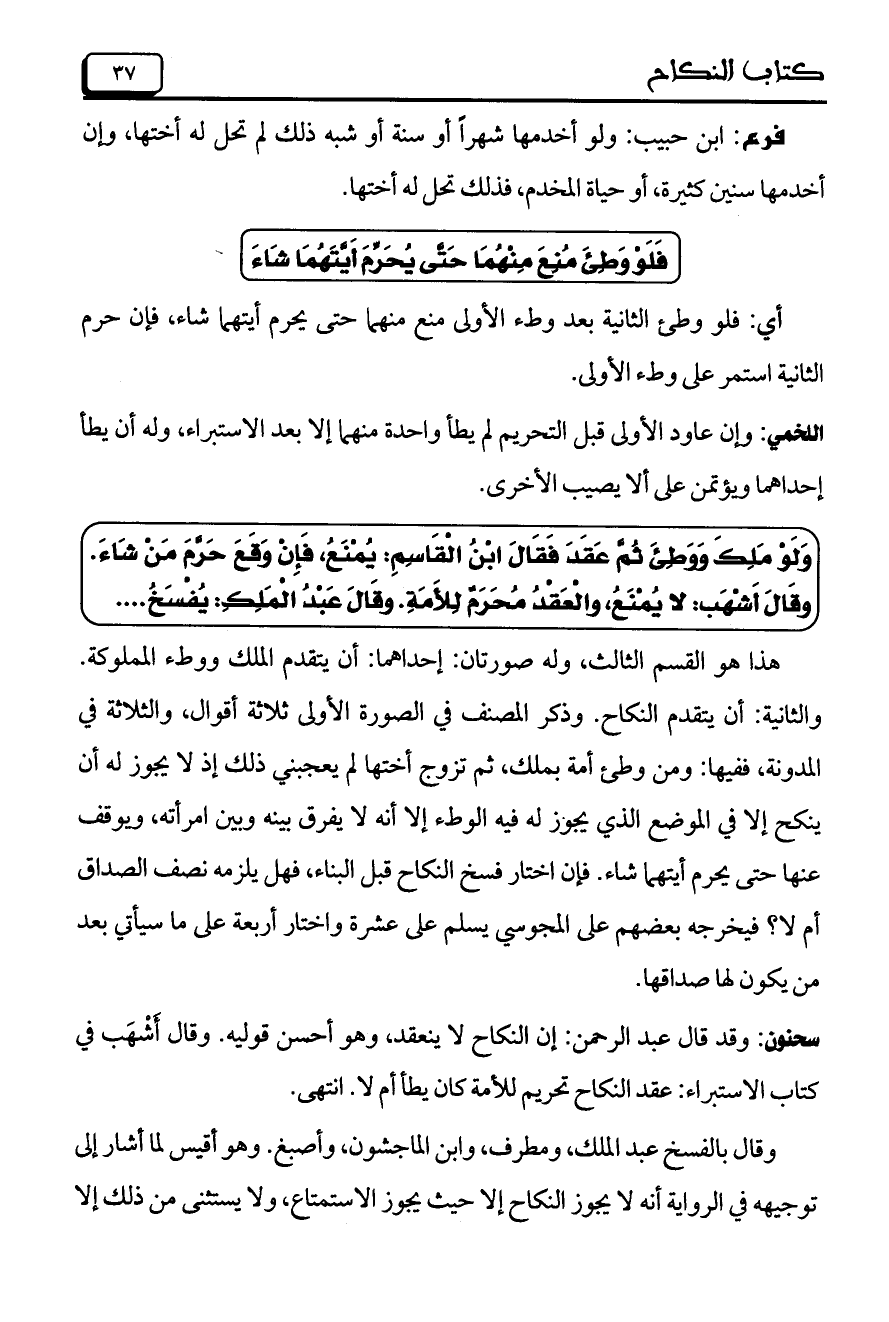 كتاب النكاح
٣٧
فرع: ابن حبيب: ولو أخدمها شهراً أو سنة أو شبه ذلك لم تحل له أختها، وإن
أخدمها سنين كثيرة، أو حياة المخدم، فذلك تحل له أختها.
فَلَوْ وَطِئَ مُنِعَ مِنْهُمَا حَتَّى يُحَرِّمَ أَيَّتَهُمَا شَاءَ
أي: فلو وطئ الثانية بعد وطء الأولى منع منهما حتى يحرم أيتهما شاء، فإن حرم
الثانية استمر على وطء الأولى.
اللخمي: وإن عاود الأولى قبل التحريم لم يطأ واحدة منهما إلا بعد الاستبراء، وله أن يطأ
إحداهما ويؤتمن على ألا يصيب الأخرى.
وَلَوْ مَلِكَ وَوَطِئَ ثُمَّ عَقَدَ فَقَالَ ابْنُ الْقَاسِمِ: يُمْنَعُ، فَإِنْ وَقَعَ حَرَّمَ مَنْ شَاءَ.
وقَالَ أَشْهَب: لا يُمْنَعُ، والْعَقْدُ مُحَرِّمٌ لِلأَمَةِ. وقَالَ عَبْدُ الْمَلِكِ: يُفْسَخُ....
هذا هو القسم الثالث، وله صورتان: إحداهما: أن يتقدم الملك ووطء المملوكة.
والثانية: أن يتقدم النكاح. وذكر المصنف في الصورة الأولى ثلاثة أقوال، والثلاثة في
المدونة، ففيها: ومن وطئ أمة بملك، ثم تزوج أختها لم يعجبني ذلك إذ لا يجوز له أن
ينكح إلا في الموضع الذي يجوز له فيه الوطء إلا أنه لا يفرق بينه وبين امرأته، ويوقف
عنها حتى يحرم أيتهما شاء. فإن اختار فسخ النكاح قبل البناء، فهل يلزمه نصف الصداق
أم لا؟ فيخرجه بعضهم على المجوسي يسلم على عشرة واختار أربعة على ما سيأتي بعد
من يكون لها صداقها.
سحنون: وقد قال عبد الرحمن: إن النكاح لا ينعقد، وهو أحسن قوليه. وقال أَشْهَب في
كتاب الاستبراء: عقد النكاح تحريم للأمة كان يطأ أم لا. انتهى.
وقال بالفسخ عبد الملك، ومطرف، وابن الماجشون، وأصبغ. وهو أقيس لما أشار إلى
توجيهه في الرواية أنه لا يجوز النكاح إلا حيث يجوز الاستمتاع، ولا يستثنى من ذلك إلا